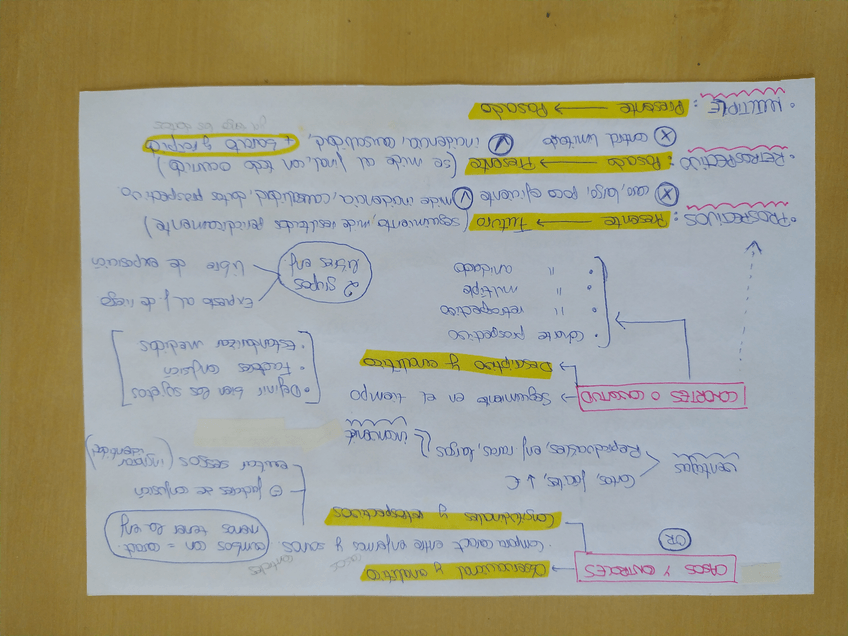 CASOS Y CONTROLES → Observacional y analítico
OR
· Compara caract. entre enfermos y sanos
casos
controles
ambos con = caract.
menos tener la enf
Longitudinales y retrospectivos
⊖ factores de confusión
evitar sesgos (ignorar identidad)
ventajas
Cortos, fáciles, ↓ €
Reproducibles, enf raras, largas
inconvenie
COHORTES O CONCATUD → Seguimiento en el tiempo
Descriptivo y analítico
· Definir bien los sujetos
· Factores confusión
· Estandarizar medidas
· Cohorte prospectivo
· " retrospectivo
· " múltiple
· " anidado
2 grupos libres enf
Expuesto al f de riesgo
Libre de exposición
· PROSPECTIVOS: Presente → Futuro (seguimiento, mide resultados periódicamente)
X caro, largo, poco eficiente V mide incidencia, causalidad, datos prospectivo
· RETROSPECTIVO: Pasado → Presente (se mide al final, con todo ocurrido)
X control limitado V incidencia, causalidad, + barato y rápido
ya tengo los datos
· MÚLTIPLE: Presente → Pasado